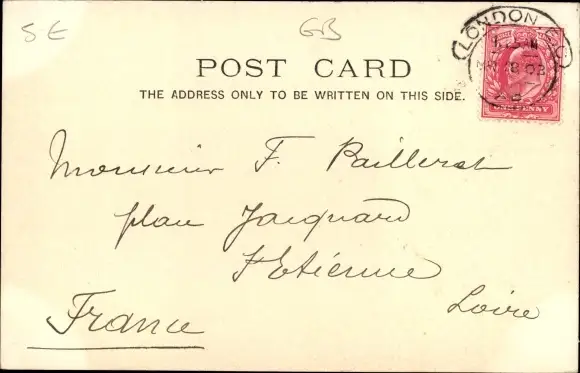 SE
GB
LONDON
POST CARD
THE ADDRESS ONLY TO BE WRITTEN ON THIS SIDE.
ONE PENNY
Monsieur F. Paillerat
place Jacquard
St Etienne
Loire
France